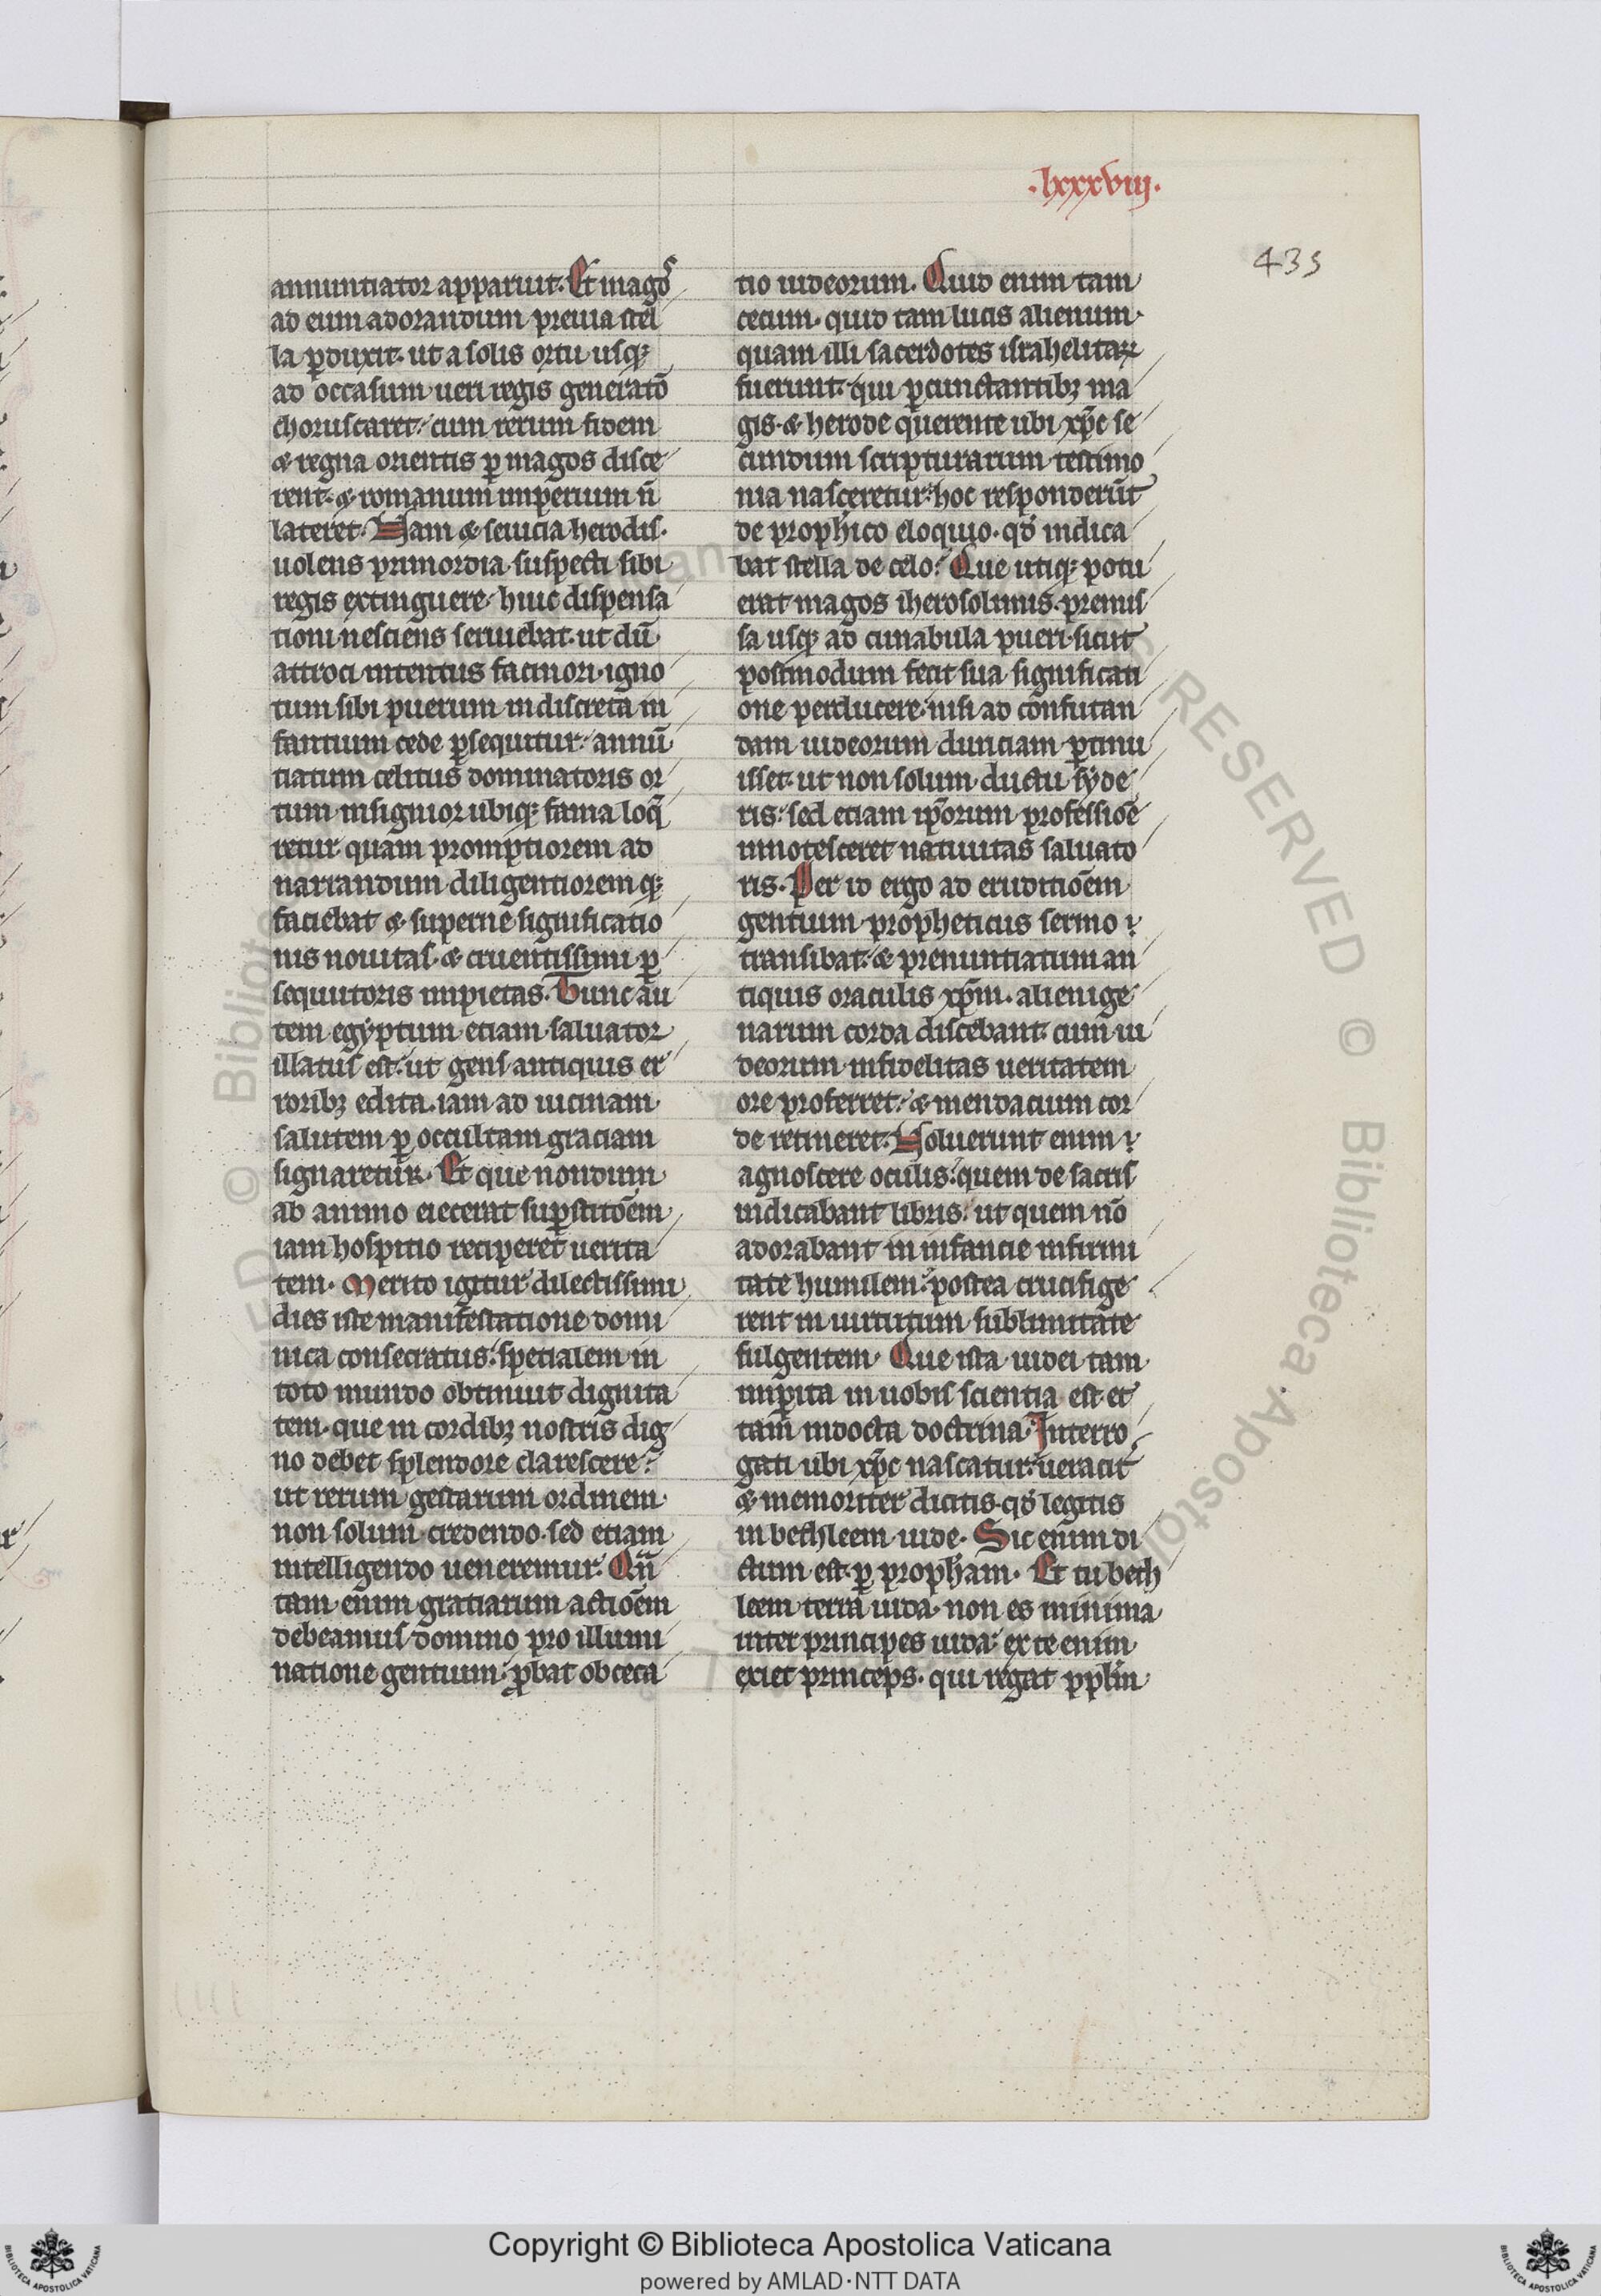 .lxxxviij.
435
annuntiator apparuit. Et magos
ad eum adorandum preuia stel
la ꝑduxit. ut a solis ortu usqꝫ
ad occasum ueri regis generatō
choruscaret. cum rerum fidem
⁊ regna orientis ꝑ magos disce
rent. ⁊ romanum imperium n̄
lateret. Nam ⁊ seuicia herodis.
uolens primordia suspecti sibi
regis extinguere. huic dispensa
tioni nesciens seruiebat. ut dū
attroci intentus facinori. igno
tum sibi puerum indiscreta in
fantium cede ꝑsequitur. annū
tiatum celitus dominatoris or
tum insignior ubiqꝫ fama loq̄
retur quam promptiorem ad
narrandum diligentiorem qꝫ
faciebat ⁊ superne significatio
nis nouitas. ⁊ cruentissimi ꝑ
sequutoris impietas. Tunc au
tem egyptum etiam saluator
illatus est. ut gens antiquis er
roribꝫ edita. iam ad uicinam
salutem ꝑ occultam graciam
signaretur. Et que nondum
ab animo eiecerat suꝑstitōem
iam hospitio reciperet uerita
tem. Merito igitur dilectissimi
dies iste manifestatione domi
nica consecratus. specialem in
toto mundo obtinuit dignita
tem. que in cordibꝫ nostris dig
no debet splendore clarescere.
ut rerum gestarum ordinem
non solum credendo. sed etiam
intelligendo ueneremur. Qn̄
tam enim gratiarum actiōem
debeamus domino pro illumi
natione gentium. ꝓbat obceca
tio iudeorum. Quid enim tam
cecum. quid tam lucis alienum.
quam illi sacerdotes israhelitaꝝ
fuerunt. qui ꝑcunctantibꝫ ma
gis. ⁊ herode querente ubi xp̄c se
cundum scripturarum testimo
nia nasceretur. hoc responderūt
de proph̄ico eloquio. qd̄ indica
bat stella de celo. Que utiqꝫ potu
erat magos iherosolimis. premis
sa usqꝫ ad cunabula pueri. sicut
postmodum fecit sua significati
one perducere. nisi ad confutan
dam iudeorum duriciam ꝑtinu
isset. ut non solum ductu syde
ris. sed etiam ip̄orum professiōe
innotesceret natiuitas saluato
ris. Per id ergo ad eruditiōem
gentium propheticus sermo
transibat. ⁊ prenuntiatum an
tiquis oraculis xp̄m. alienige
narum corda discebant. cum iu
deorum infidelitas ueritatem
ore proferret. ⁊ mendacium cor
de retineret. Noluerunt enim
agnoscere oculis. quem de sacris
indicabant libris. ut quem nō
adorabant in infancie infirmi
tate humilem. postea crucifige
rent in uirtutum sublimitate
fulgentem. Que ista iudei tam
imꝑita in uobis scientia est. et
tam indocta doctrina. Interro
gati ubi xp̄c nascatur. ueracit̄
⁊ memoriter dicitis. qd̄ legitis
in bethleem iude. Sic enim di
ctum est. ꝑ proph̄am. Et tu beth
leem terra iuda. non es minima
inter principes iuda. ex te enim
exiet princeps. qui regat ppl̄m
Copyright © Biblioteca Apostolica Vaticana
powered by AMLAD·NTT DATA